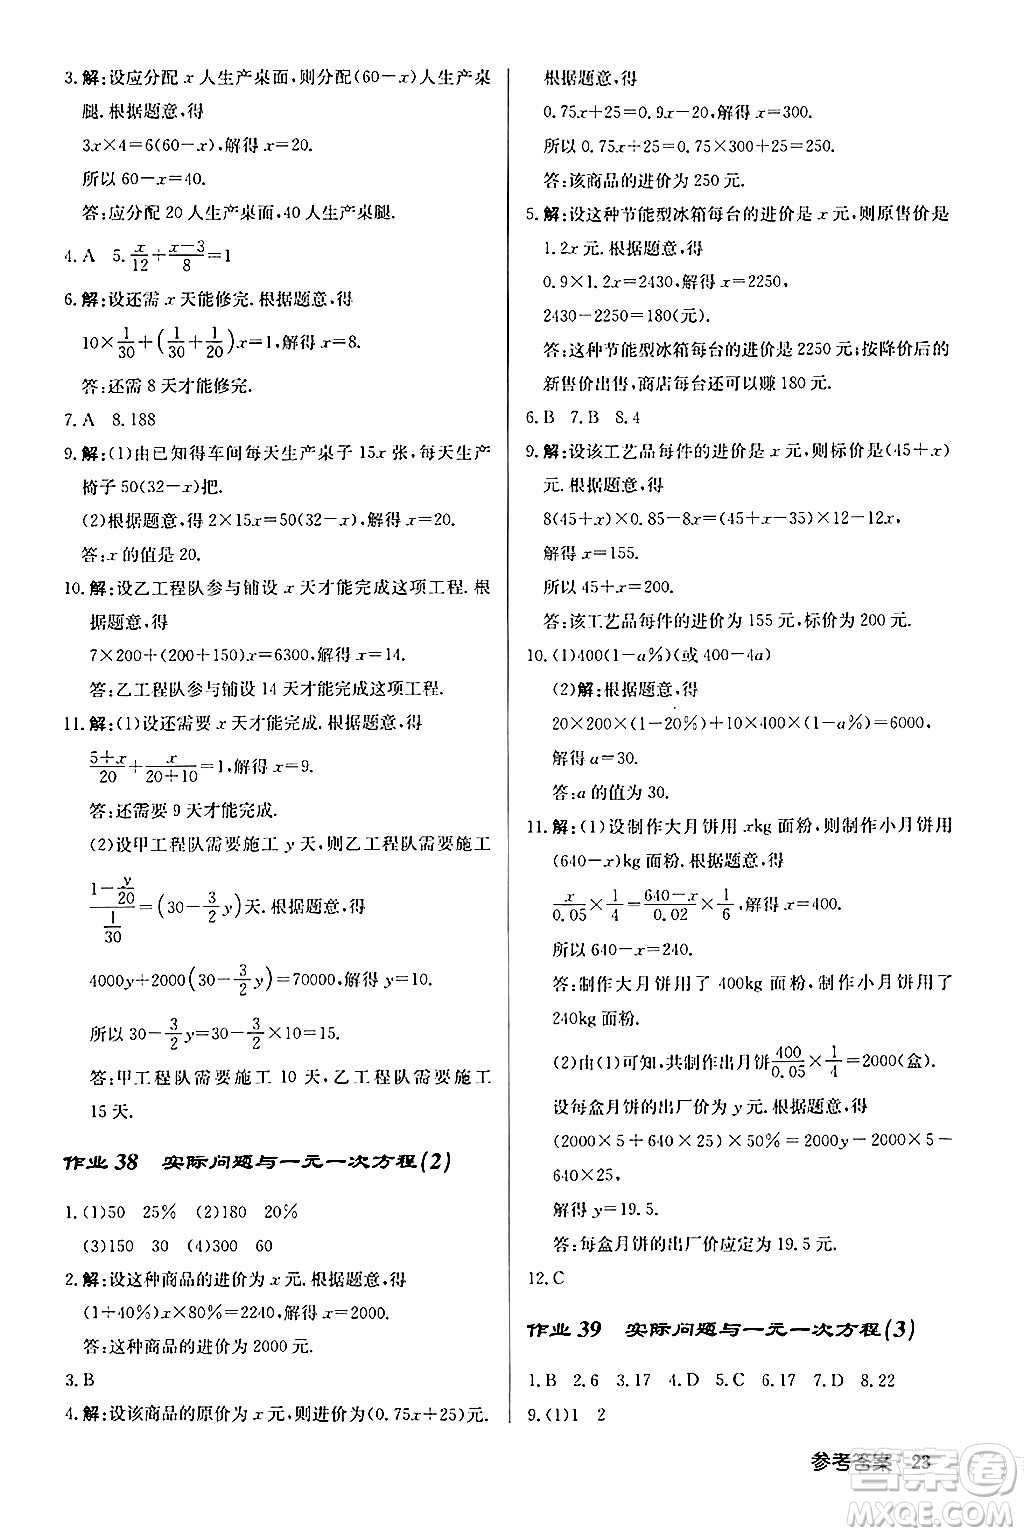 3.解:设应分配 x 人生产桌面,则分配(60-x)人生产桌
腿.根据题意,得
3x×4=6(60-x),解得 x=20.
所以 60-x=40.
答:应分配 20 人生产桌面,40 人生产桌腿.
4.A 5. x/12+(x-3)/8=1
6.解:设还需 x 天能修完.根据题意,得
10×1/30+(1/30+1/20)x=1,解得 x=8.
答:还需 8 天才能修完.
7.A 8.188
9.解:(1)由已知得车间每天生产桌子 15x 张,每天生产
椅子 50(32-x)把.
(2)根据题意,得 2×15x=50(32-x),解得 x=20.
答:x 的值是 20.
10.解:设乙工程队参与铺设 x 天才能完成这项工程.根
据题意,得
7×200+(200+150)x=6300,解得 x=14.
答:乙工程队参与铺设 14 天才能完成这项工程.
11.解:(1)设还需要 x 天才能完成.根据题意,得
(5+x)/20+x/(20+10)=1,解得 x=9.
答:还需要 9 天才能完成.
(2)设甲工程队需要施工 y 天,则乙工程队需要施工
(1-y/20)/(1/30)=(30-3/2y)天.根据题意,得
4000y+2000(30-3/2y)=70000,解得 y=10.
所以 30-3/2y=30-3/2×10=15.
答:甲工程队需要施工 10 天,乙工程队需要施工
15 天.
作业 38 实际问题与一元一次方程(2)
1.(1)50 25% (2)180 20%
(3)150 30 (4)300 60
2.解:设这种商品的进价为 x 元.根据题意,得
(1+40%)x×80%=2240,解得 x=2000.
答:这种商品的进价为 2000 元.
3.B
4.解:设该商品的原价为 x 元,则进价为(0.75x+25)元.
根据题意,得
0.75x+25=0.9x-20,解得 x=300.
所以 0.75x+25=0.75×300+25=250.
答:该商品的进价为 250 元.
5.解:设这种节能型冰箱每台的进价是 x 元,则原售价是
1.2x 元.根据题意,得
0.9×1.2x=2430,解得 x=2250.
2430-2250=180(元).
答:这种节能型冰箱每台的进价是 2250 元;按降价后的
新售价出售,商店每台还可以赚 180 元.
6.B 7.B 8.4
9.解:设该工艺品每件的进价是 x 元,则标价是(45+x)
元.根据题意,得
8(45+x)×0.85-8x=(45+x-35)×12-12x,
解得 x=155.
所以 45+x=200.
答:该工艺品每件的进价为 155 元,标价为 200 元.
10.(1)400(1-a%)(或 400-4a)
(2)解:根据题意,得
20×200×(1-20%)+10×400×(1-a%)=6000,
解得 a=30.
答:a 的值为 30.
11.解:(1)设制作大月饼用 xkg 面粉,则制作小月饼用
(640-x)kg 面粉.根据题意,得
x/0.05×1/4=(640-x)/0.02×1/6,解得 x=400.
所以 640-x=240.
答:制作大月饼用了 400kg 面粉,制作小月饼用了
240kg 面粉.
(2)由(1)可知,共制作出月饼400/0.05×1/4=2000(盒)
设每盒月饼的出厂价为 y 元.根据题意,得
(2000×5+640×5)×50%=2000y-2000×5-
640×5,
解得 y=19.5.
答:每盒月饼的出厂价应定为 19.5 元.
12.C
作业 39 实际问题与一元一次方程(3)
1.B 2.6 3.17 4.D 5.C 6.17 7.D 8.22
9.(1)1 2
参考答案 23
答案卷
MXQE.COM